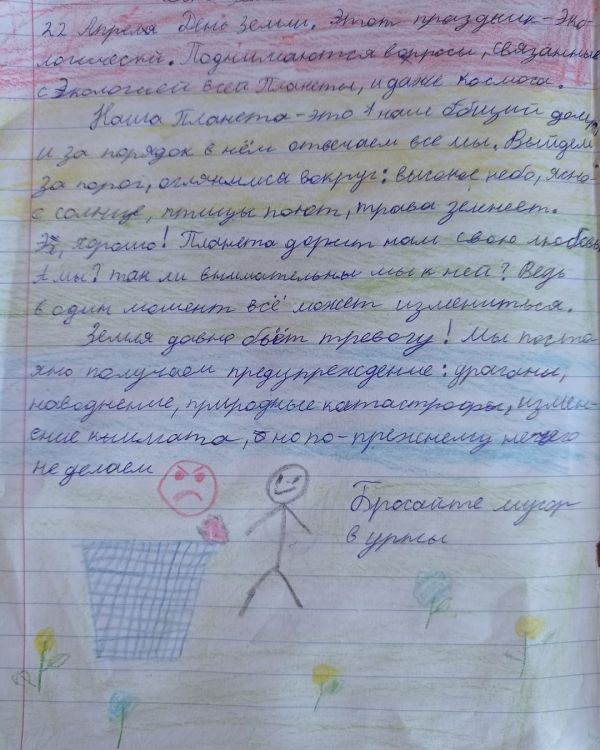 22 Апреля День Земли. Этот праздник - Эко-
логический. Поднимаются вопросы, связанные
с Экологией всей Планеты, и даже космоса.
Наша Планета - это наш общий дом,
и за порядок в нём отвечаем все мы. Выйдем
за порог, оглянимся вокруг: высокое небо, ясно-
е солнце, птицы поют, трава зеленеет.
Эх, хорошо! Планета дарит нам свою любовь,
А мы? так ли внимательны мы к ней? Ведь
в один момент всё может измениться.
Земля давно бьёт тревогу! Мы посто
яно получаем предупреждение: ураганы,
наводнение, природные катастрофы, измен-
ение климата, но по-прежнему нечего
не делаем
Бросайте мусор
в урны